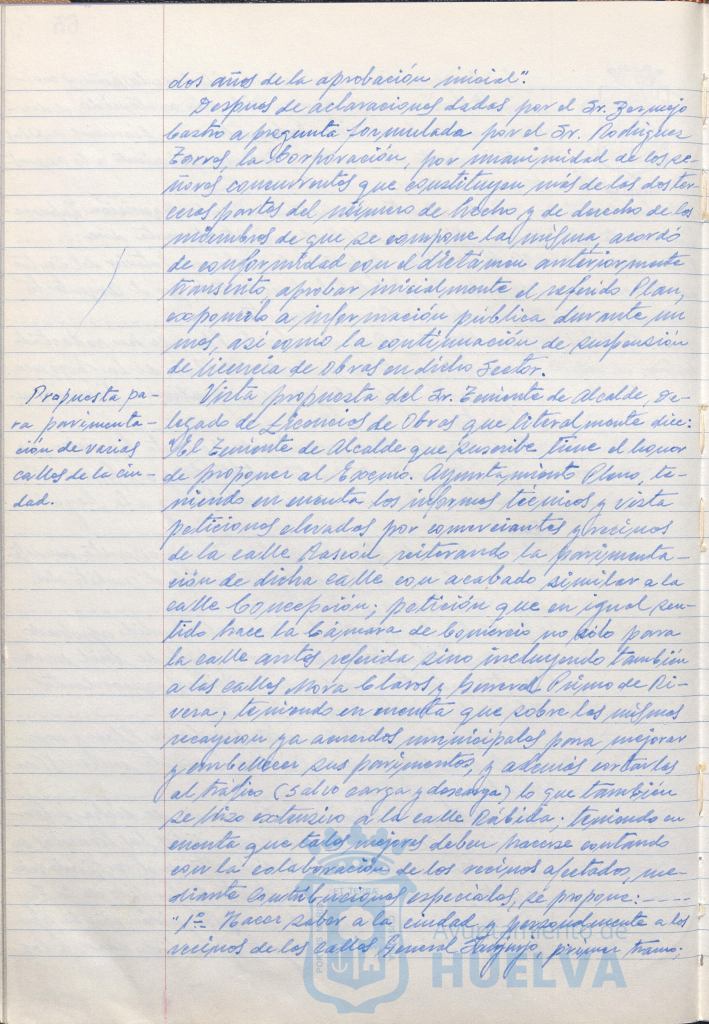 dos años de la aprobación inicial".
Despues de aclaraciones dadas por el Sr. Bermejo
Castro a pregunta formulada por el Sr. Rodríguez
Torres, la Corporación, por unanimidad de los se-
ñores concurrentes que constituyen más de las dos ter-
ceras partes del número de hecho y de derecho de los
miembros de que se compone la misma, acordó
de conformidad con el dictámen anteriormente
transcrito, aprobar inicialmente el referido Plan,
exponerlo a información pública durante un
mes, así como la continuación de suspensión
de licencia de Obras en dicho Sector.
Propuesta pa-
ra pavimenta-
ción de varias
calles de la ciu-
dad.
Vista propuesta del Sr. Teniente de Alcalde, De-
legado de Licencias de Obras que literalmente dice:
"El Teniente de Alcalde que suscribe tiene el honor
de proponer al Excmo. Ayuntamiento Pleno, te-
niendo en cuenta los informes técnicos y vista
peticiones elevadas por comerciantes y vecinos
de la calle Rascón reiterando la pavimenta-
ción de dicha calle con acabado similar a la
calle Concepción; petición que en igual sen-
tido hace la Cámara de Comercio no sólo para
la calle antes referida sino incluyendo también
a las calles Mora Claros y General Primo de Ri-
vera; teniendo en cuenta que sobre las mismas
recayeron ya acuerdos municipales para mejorar
y embellecer sus pavimentos, y además cortarlas
al tráfico (Salvo carga y descarga) lo que también
se hizo extensivo a la calle Rábida; teniendo en
cuenta que tales mejoras deben hacerse contando
con la colaboración de los vecinos afectados, me-
diante contribuciones especiales, se propone: -----
"1º- Hacer saber a la ciudad y personalmente a los
vecinos de las calles General primer tramo;
Ayuntamiento de
HUELVA